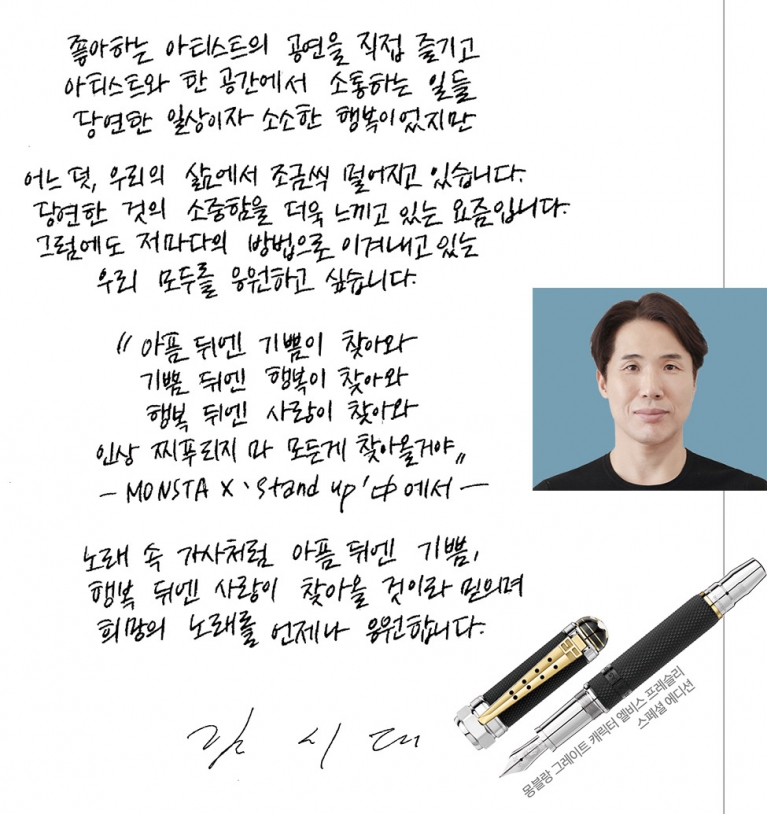 좋아하는 아티스트의 공연을 직접 즐기고
아티스트와 한 공간에서 소통하는 일들
당연한 일상이자 소소한 행복이었지만
어느 덧, 우리의 삶에서 조금씩 멀어지고 있습니다.
당연한 것의 소중함을 더욱 느끼고 있는 요즘입니다.
그럼에도 저마다의 방법으로 이겨내고 있는
우리 모두를 응원하고 싶습니다.
“아픔 뒤엔 기쁨이 찾아와
기쁨 뒤엔 행복이 찾아와
행복 뒤엔 사랑이 찾아와
인상 찌푸리지 마 모든게 찾아올거야”
- MONSTA X ‘Stand up’ 中에서 -
노래 속 가사처럼 아픔 뒤엔 기쁨,
행복 뒤엔 사랑이 찾아올 것이라 믿으며
희망의 노래를 언제나 응원합니다.
김 시 대
몽블랑 그레이트 캐릭터 엘비스 프레슬리
스페셜 에디션